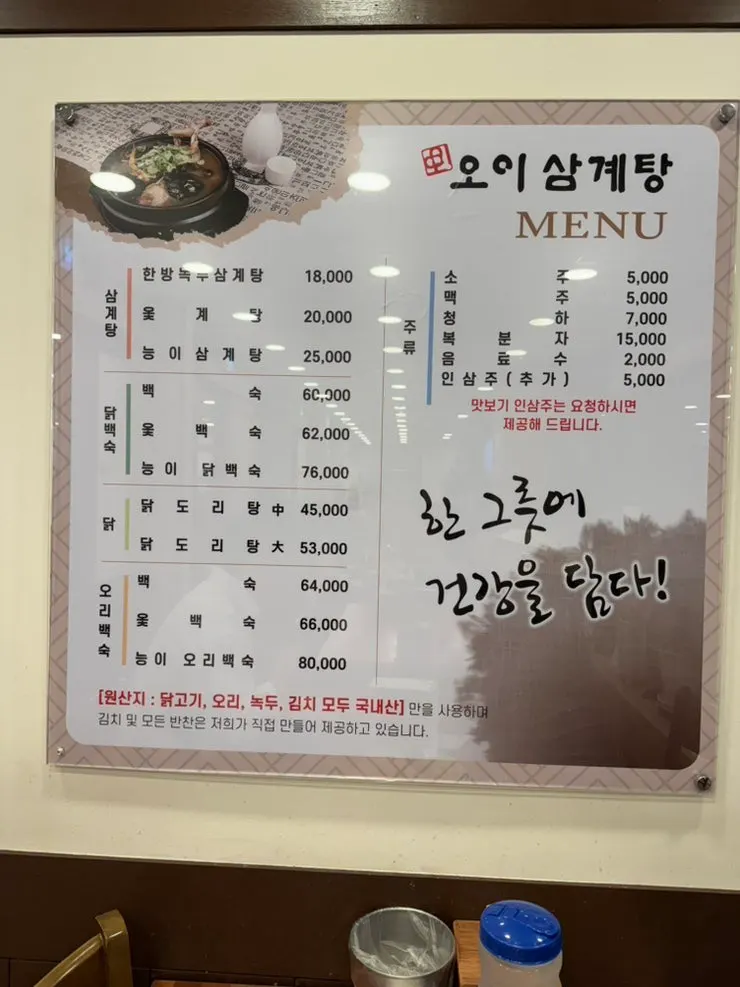 오이삼계탕
MENU
삼계탕
한방녹두삼계탕 18,000
옻계탕 20,000
능이삼계탕 25,000
닭백숙
백숙 60,000
옻백숙 62,000
능이 닭백숙 76,000
닭
닭도리탕 中 45,000
닭도리탕 大 53,000
오리백숙
백숙 64,000
옻백숙 66,000
능이 오리백숙 80,000
주류
소주 5,000
맥주 5,000
청하 7,000
복분자 15,000
음료수 2,000
인삼주(추가) 5,000
맛보기 인삼주는 요청하시면
제공해 드립니다.
한 그릇에
건강을 담다!
[원산지 : 닭고기, 오리, 녹두, 김치 모두 국내산] 만을 사용하며
김치 및 모든 반찬은 저희가 직접 만들어 제공하고 있습니다.